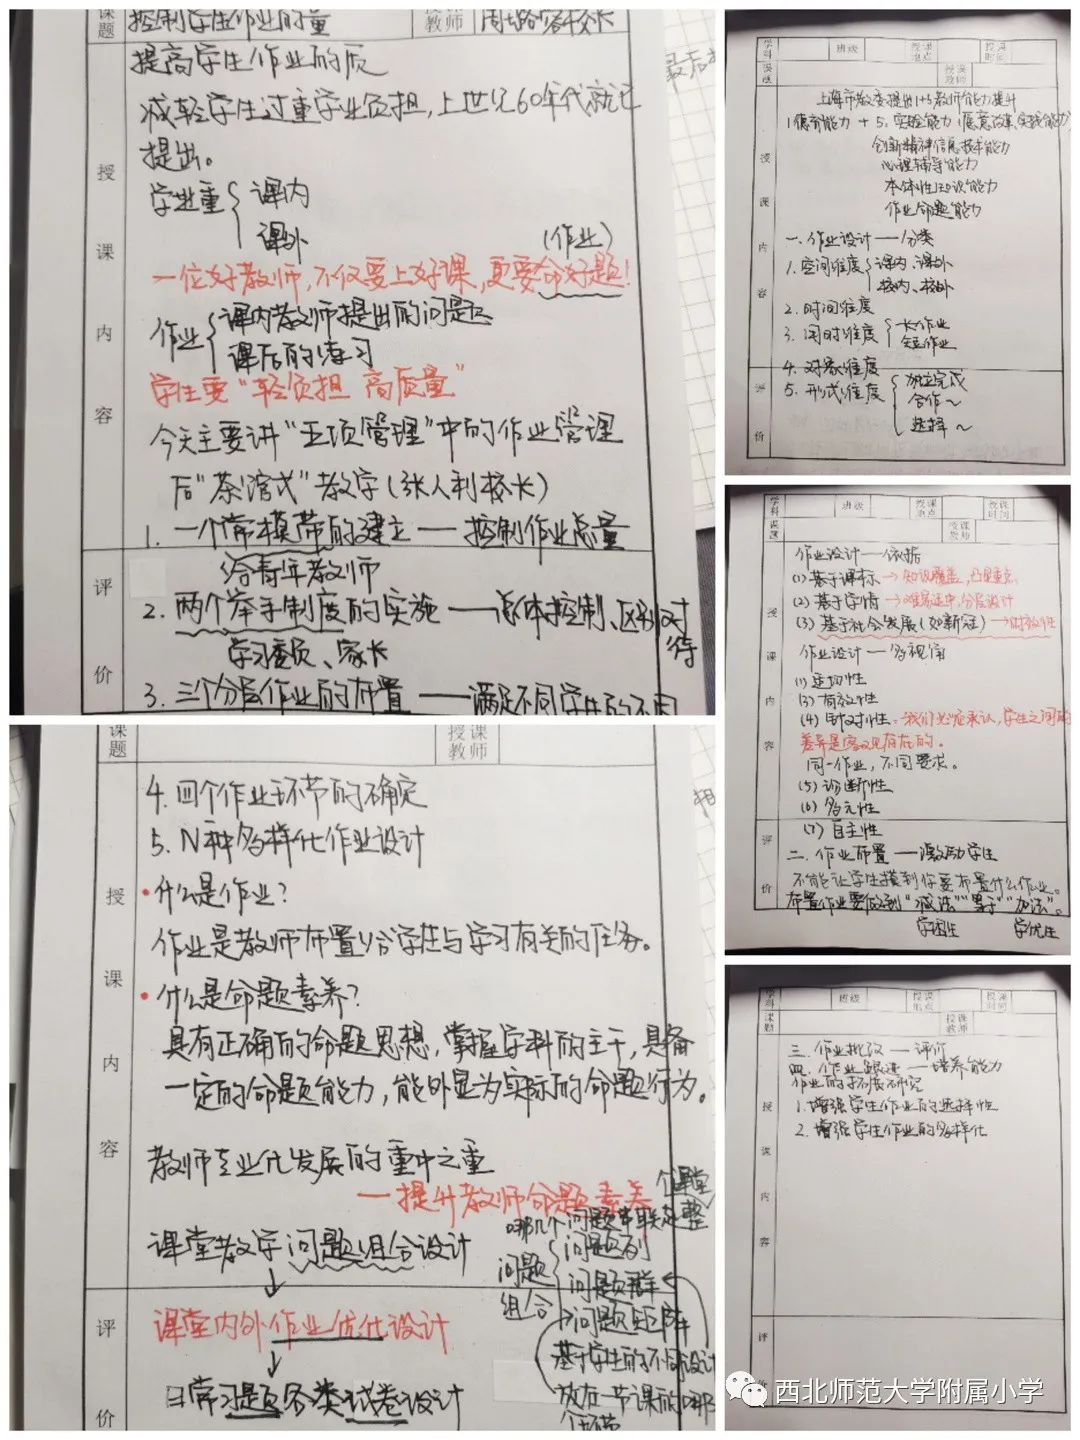 课题 控制学生作业的量 授课教师 周少璐 容校长
提高学生作业的质
减轻学生过重学业负担，上世纪60年代就已
提出。
学业重 课内
课外
（作业）
一位好教师，不仅要上好课，更要命好题！
作业 课内教师提出的问题
课后的练习
学生要“轻负担 高质量”
今天主要讲“五项管理”中的作业管理
后“茶馆式”教学（张人利校长）
1. 一个常模带的建立——控制作业总量
给青年教师
2. 两个举手制度的实施——总体控制、区别对待
学习委员、家长
3. 三个分层作业的布置——满足不同学生的不同
授课内容
评价
课题 授课教师
4. 四个作业环节的确定
5. N种多样化作业设计
·什么是作业？
作业是教师布置给学生与学习有关的任务。
·什么是命题素养？
具有正确的命题思想，掌握学科的主干，具备
一定的命题能力，能外显为实际的命题行为。
教师专业化发展的重中之重
——提升教师命题素养
课堂教学问题组合设计
课堂内外作业优化设计
日常习题各类试卷设计
个课堂
哪几个问题串联起整
问题组合
问题列
问题群
问题矩阵
基于学生的不同设计
放在一节课的哪
个环节
授课内容
评价
学科 班级 授课地点 授课时间
课题 授课教师
上海市教委提出1+5教师能力提升
1德育能力+5。实验能力（愿意改革、实践能力）
创新精神信息技术能力
心理辅导能力
本体性知识能力
作业命题能力
一、作业设计——分类
1. 空间维度 课内、课外
校内、校外
2. 时间维度
3. 用时维度 长作业
短作业
4. 对象维度
5. 形式维度 独立完成
合作～
选择～
授课内容
评价
学科 班级 授课地点 授课时间
课题 授课教师
作业设计——依据
（1）基于课标→知识覆盖，凸显重点
（2）基于学情→难易适中，分层设计
（3）基于社会发展（如新冠）→时效性
作业设计——多视角
（1）建构性
（3）有效性
（4）针对性·我们必须承认，学生之间的
差异是客观存在的。
同一作业，不同要求。
（5）诊断性
（6）多元性
（7）自主性
二、作业布置——激励学生
不能让学生摸到你要布置什么作业。
布置作业要做到“减法”“等于”“加法”。
学困生 学优生
授课内容
评价
学科 班级 授课地点 授课时间
课题 授课教师
三、作业批改——评价
四、作业跟进——培养能力
作业的拓展研究
1. 增强学生作业的选择性
2. 增强学生作业的多样化
授课内容
评价
西北师范大学附属小学